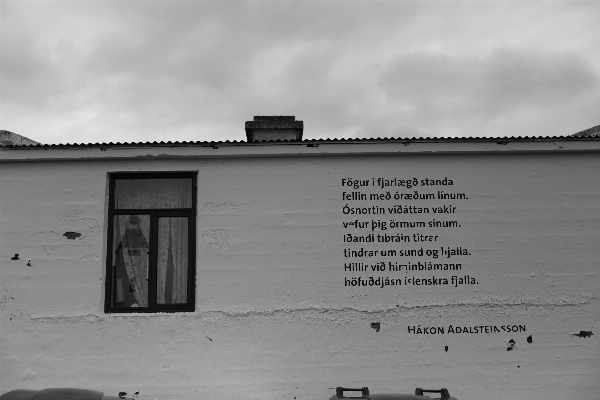 Fögur í fjarlægð standa
fellin með óræðum línum.
Ósnortin víðáttan vakir
vefur þig örmum sínum.
Iðandi tíbráin titrar
tindrar um sund og hjalla.
Hillir við himinblámann
höfuðdjásn íslenskra fjalla.
HÁKON AÐALSTEINSSON